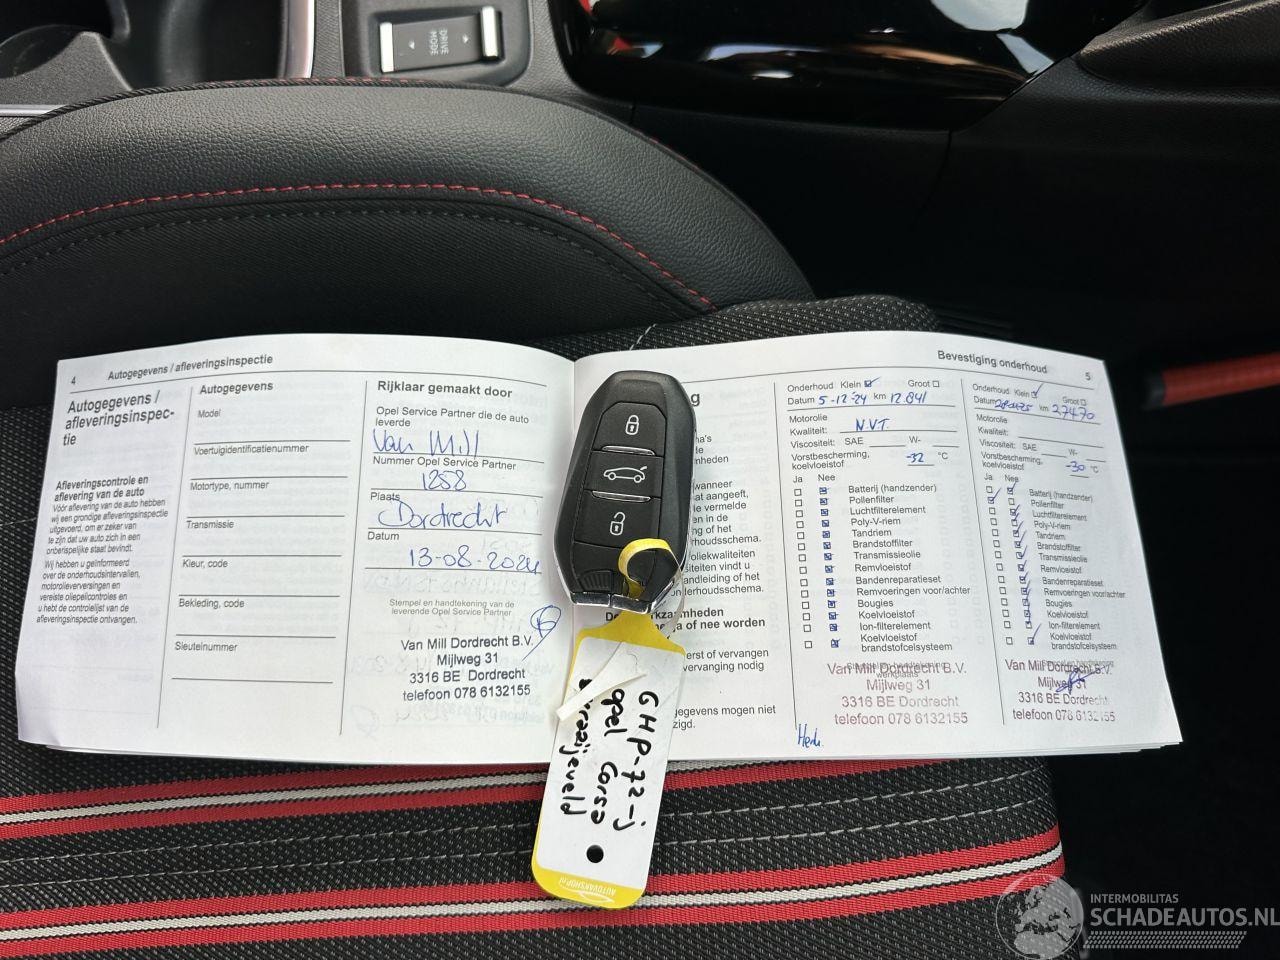 DRIVE
MODE
4
Autogegevens / afleveringsinspectie
Autogegevens /
afleveringsinspec-
tie
Afleveringscontrole en
aflevering van de auto
Vóór aflevering van de auto hebben
wij een grondige afleveringsinspectie
uitgevoerd, om er zeker van
te zijn dat uw auto zich in een
onberispelijke staat bevindt.
Wij hebben u geïnformeerd
over de onderhoudsintervallen,
motorolieverversingen en
vereiste oliepeilcontroles en
u hebt de controlelijst van de
afleveringsinspectie ontvangen.
Autogegevens
Model
Voertuigidentificatienummer
Motortype, nummer
Transmissie
Kleur, code
Bekleding, code
Sleutelnummer
Rijklaar gemaakt door
Opel Service Partner die de auto
leverde
Van Mill
Nummer Opel Service Partner
1258
Plaats
Dordrecht
Datum
13-08-2024
Stempel en handtekening van de
leverende Opel Service Partner
Van Mill Dordrecht B.V.
Mijlweg 31
3316 BE Dordrecht
telefoon 078 6132155
wanneer
at aangeeft,
le vermelde
en in de
ng of het
rhoudsschema.
oliekwaliteiten
siteiten vindt u
andleiding of het
nderhoudsschema.
nheden
of nee worden
erst of vervangen
vervanging nodig
gegevens mogen niet
zigd.
Bevestiging onderhoud
5
Onderhoud Klein Groot
Datum 5-12-24 km 12.841
Motorolie
Kwaliteit: N.V.T.
Viscositeit: SAE W-
Vorstbescherming, -32 °C
koelvloeistof
Ja Nee
Batterij (handzender)
Pollenfilter
Luchtfilterelement
Poly-V-riem
Tandriem
Brandstoffilter
Transmissieolie
Remvloeistof
Bandenreparatieset
Remvoeringen voor/achter
Bougies
Koelvloeistof
Ion-filterelement
Koelvloeistof
brandstofcelsysteem
Van Mill Dordrecht B.V.
Mijlweg 31
3316 BE Dordrecht
telefoon 078 6132155
Onderhoud Klein Groot
Datum km 27470
Motorolie
Kwaliteit:
Viscositeit: SAE W-
Vorstbescherming, -30 °C
koelvloeistof
Ja Nee
Batterij (handzender)
Pollenfilter
Luchtfilterelement
Poly-V-riem
Tandriem
Brandstoffilter
Transmissieolie
Remvloeistof
Bandenreparatieset
Remvoeringen voor/achter
Bougies
Koelvloeistof
Ion-filterelement
Koelvloeistof
brandstofcelsysteem
Van Mill Dordrecht B.V.
Mijlweg 31
3316 BE Dordrecht
telefoon 078 6132155
GHP-72-J
opel Corsa
AUTOVAKSHOP.nl
INTERMOBILITAS
SCHADEAUTOS.NL